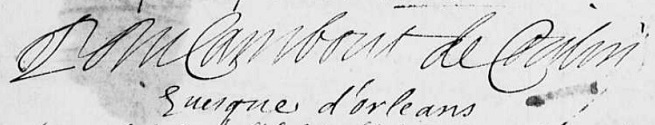 du Cambout de Coislin
Euesque d'orleans